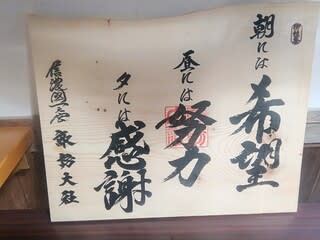 朝には
希望
昼には
努力
夕には
感謝
信濃國一之宮
諏訪大社